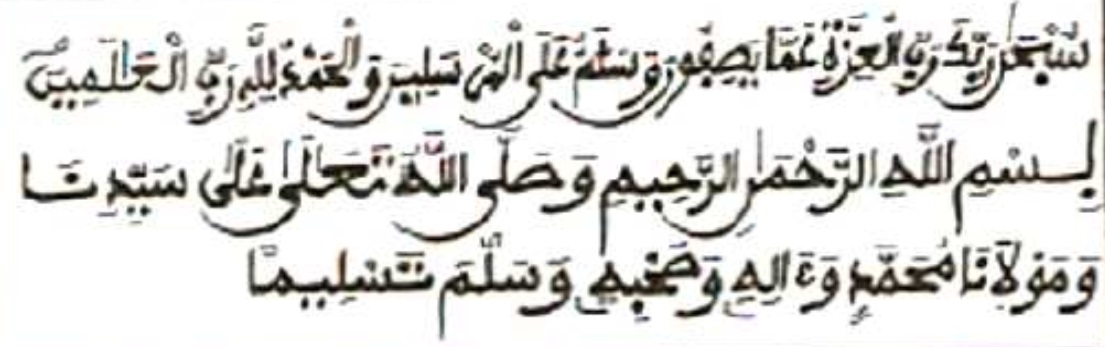 سُبْحَٰنَ رَبِّكَ رَبِّ الْعِزَّةِ عَمَّا يَصِفُونَ وَسَلَٰمٌ عَلَى الْمُرْسَلِينَ وَالْحَمْدُ لِلَّهِ رَبِّ الْعَٰلَمِينَ
بِسْمِ اللَّهِ الرَّحْمَٰنِ الرَّحِيمِ وَصَلَّى اللَّهُ تَعَالَىٰ عَلَىٰ سَيِّدِنَا
وَمَوْلَانَا مُحَمَّدٍ وَءَالِهِ وَصَحْبِهِ وَسَلَّمَ تَسْلِيمًا